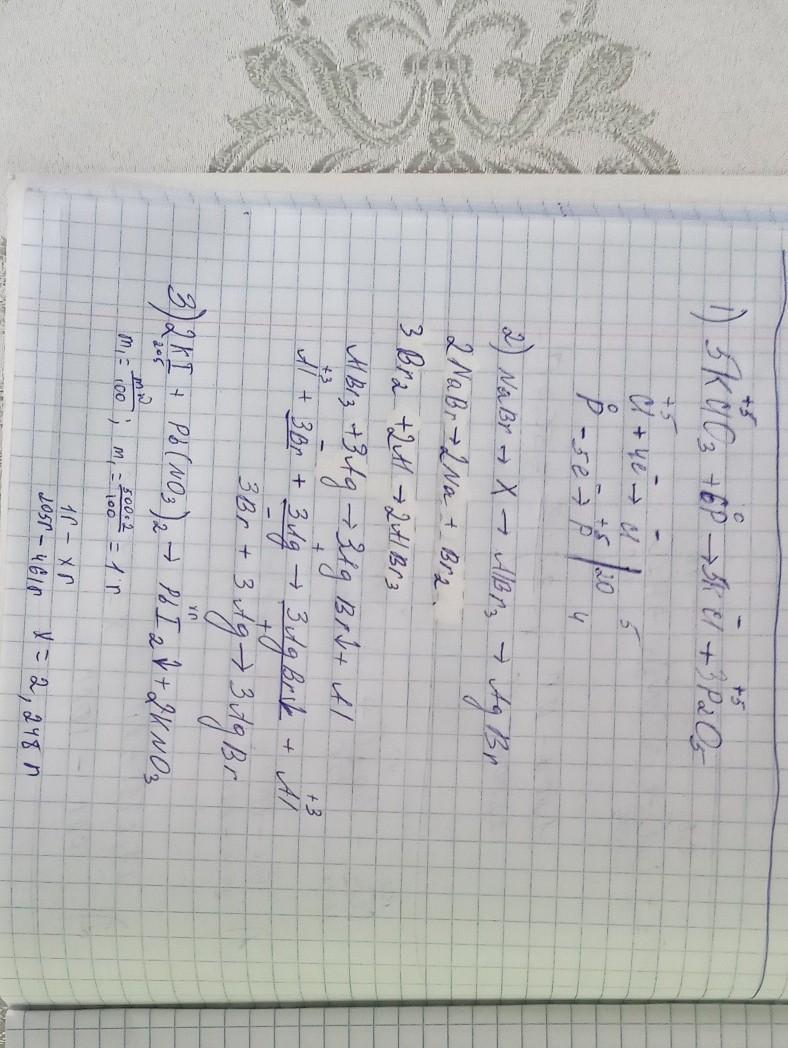 1) 5KClO3 + 6P → 5KCl + 3P2O5
+5 0 - +5
+5 -
Cl + 4e̅ → Cl | 5
0 +5 20
P - 5e̅ → P | 4
2) NaBr → X → AlBr3 → AgBr
2NaBr → 2Na + Br2.
3Br2 + 2Al → 2AlBr3
AlBr3 + 3Ag → 3AgBr↓ + Al
+3 - + +3
Al + 3Br + 3Ag → 3AgBr↓ + Al
- +
3Br + 3Ag → 3AgBr
3) 2KI + Pb(NO3)2 → PbI2↓ + 2KNO3
xг
m1 = mω/100 ; m1 = 50·2/100 = 1г
1г - xг
- 461г x = 2,248г